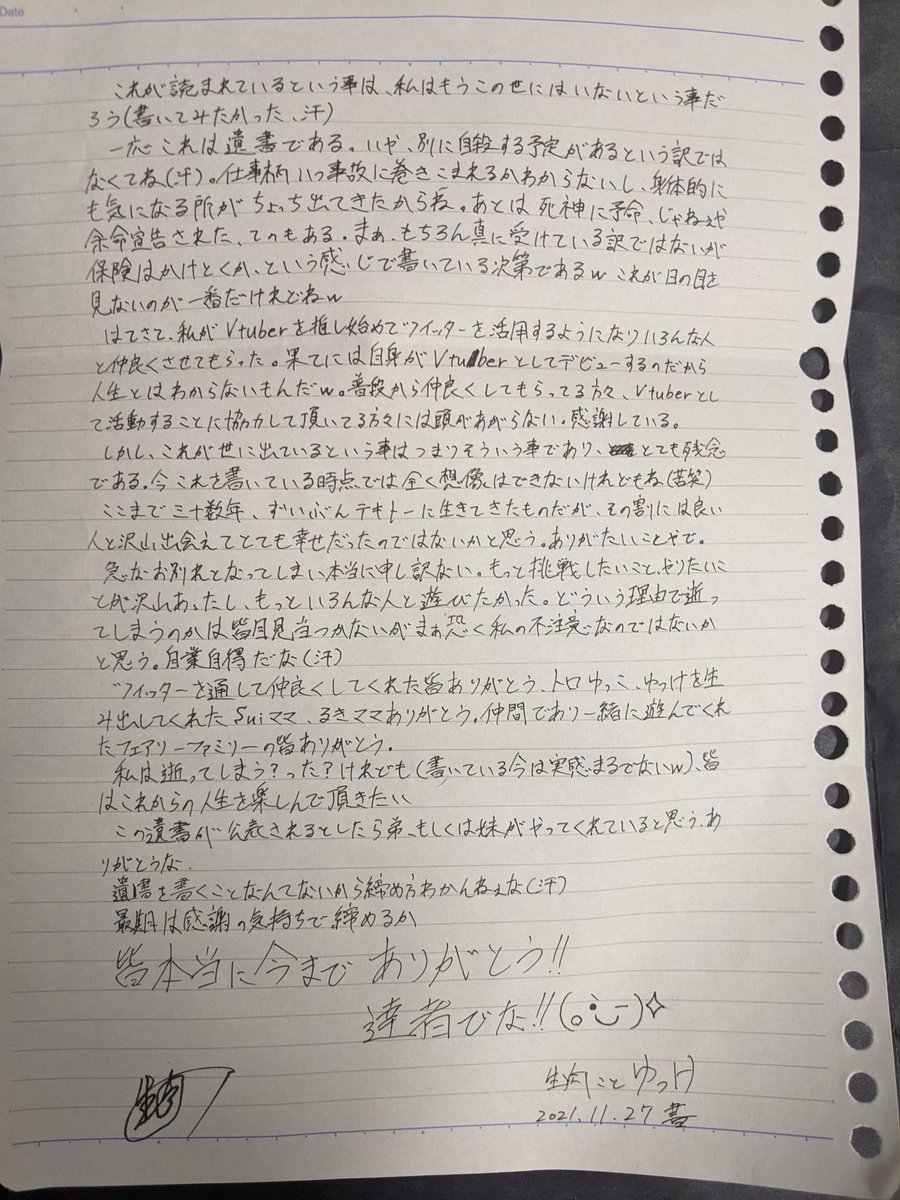 Date
これが読まれているという事は、私はもうこの世にはいないという事だ
ろう(書いてみたかった、汗)
一応これは遺書である。いや、別に自殺する予定があるという訳では
なくてね(汗)。仕事柄いつ事故に巻きこまれるかわからないし、身体的に
も気になる所がちょっち出てきたからね。あとは死神に予命、じゃねぇや
余命宣告された、てのもある。まぁ、もちろん真に受けている訳ではないが
保険はかけとくか、という感じで書いている次第であるw これが日の目を
見ないのが一番だけれどねw
はてさて、私がVtuberを推し始めてツイッターを活用するようになりいろんな人
と仲良くさせてもらった。果てには自身がVtuberとしてデビューするのだから
人生とはわからないもんだw。普段から仲良くしてもらってる方々、Vtuberとし
て活動することに協力して頂いてる方々には頭があがらない。感謝している。
しかし、これが世に出ているという事はつまりそういう事であり、とても残念
である。今これを書いている時点では全く想像はできないけれどもね(苦笑)
ここまで三十数年、ずいぶんテキトーに生きてきたものだが、その割には良い
人と沢山出会えてとても幸せだったのではないかと思う。ありがたいことやで。
急なお別れとなってしまい本当に申し訳ない。もっと挑戦したいこと、やりたいこ
とが沢山あったし、もっといろんな人と遊びたかった。どういう理由で逝っ
てしまうのかは皆目見当つかないがまぁ恐く私の不注意なのではないか
と思う。自業自得だな(汗)
ツイッターを通して仲良くしてくれた皆ありがとう、トロゆっこ、ゆっけを生
み出してくれたSuiママ、るきママありがとう。仲間であり一緒に遊んでくれ
たフェアリーファミリーの皆ありがとう。
私は逝ってしまう?った?けれども(書いている今は実感まるでないw)、皆
はこれからの人生を楽しんで頂きたい
この遺書が公表されるとしたら弟、もしくは妹がやってくれていると思う、あ
りがとうな.
遺書を書くことなんてないから締め方わかんねぇな(汗)
最期は感謝の気持ちで締めるか
皆本当に今まで ありがとう!!
達者でな!!(。•̀ᴗ-)✧
生肉ことゆっけ
2021.11.27 書